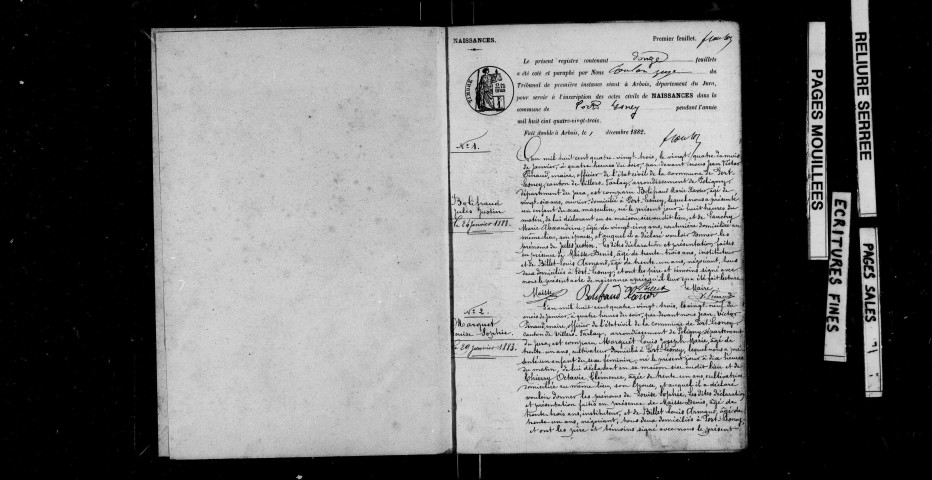 NAISSANCES.
Premier feuillet.
Le présent registre contenant douze feuillets
a été coté et paraphé par Nous juge du
Tribunal de première instance séant à Arbois, département du Jura,
pour servir à l'inscription des actes civils de NAISSANCES dans la
commune de Port Lesney pendant l'année
mil huit cent quatre-vingt-trois.
Fait double à Arbois, le 1 décembre 1882.
N° 1.
Bolifraud
Jules Justin
le 24 janvier 1883.
L'an mil huit cent quatre-vingt-trois, le vingt-quatre du mois
de janvier, à quatre heures du soir, par devant nous Jean Victor
Pinaud, maire, officier de l'état civil de la commune de Port-
Lesney, canton de Villers-Farlay, arrondissement de Poligny,
département du Jura, est comparu Bolifraud Marie Xavier, âgé de
vingt-six ans, domicilié à Port-Lesney, lequel nous a présenté
un enfant du sexe masculin, né le présent jour à huit heures du
matin, de lui déclarant en sa maison sise audit lieu, et de
Marie Alexandrine, âgée de vingt-cinq ans, couturière domiciliée au
même lieu, son épouse, et auquel il a déclaré vouloir donner les
prénoms de Jules Justin, les dites déclaration et présentation faites
en présence de Maisse Denis, âgé de trente-trois ans, instituteur
et de Billet Louis Armand, âgé de trente-un ans, négociant, tous
deux domiciliés à Port-Lesney, et ont les père et témoins signé avec
nous le présent acte de naissance après qu'il leur en a été fait lecture
Maisse Bolifraud Xavier Billet Le Maire
V. Pinaud
N° 2
Marquet
Louise Sophie
le 29 janvier 1883.
L'an mil huit cent quatre-vingt-trois, le vingt-neuf du
mois de janvier, à quatre heures du soir, par devant nous Jean Victor
Pinaud, maire, officier de l'état civil de la commune de Port-Lesney,
canton de Villers-Farlay, arrondissement de Poligny, département
du Jura, est comparu Marquet Louis Joseph Marie, âgé de
trente-un ans, cultivateur domicilié à Port-Lesney, lequel nous a pré-
senté un enfant du sexe féminin, né le présent jour à dix heures
du matin, de lui déclarant en sa maison sise audit lieu et de
Thierry Octavie Clémence, âgée de trente-un ans, cultivatrice
domiciliée au même lieu, son épouse, et auquel il a déclaré
vouloir donner les prénoms de Louise Sophie, les dites déclaration
et présentation faites en présence de Maisse Denis, âgé de
trente-trois ans, instituteur, et de Billet Louis Armand, âgé de
trente-un ans, négociant, tous deux domiciliés à Port-Lesney,
et ont les père et témoins signé avec nous le présent
PAGES MOUILLEES
ECRITURES FINES
RELIURE SERREE
PAGES SALES